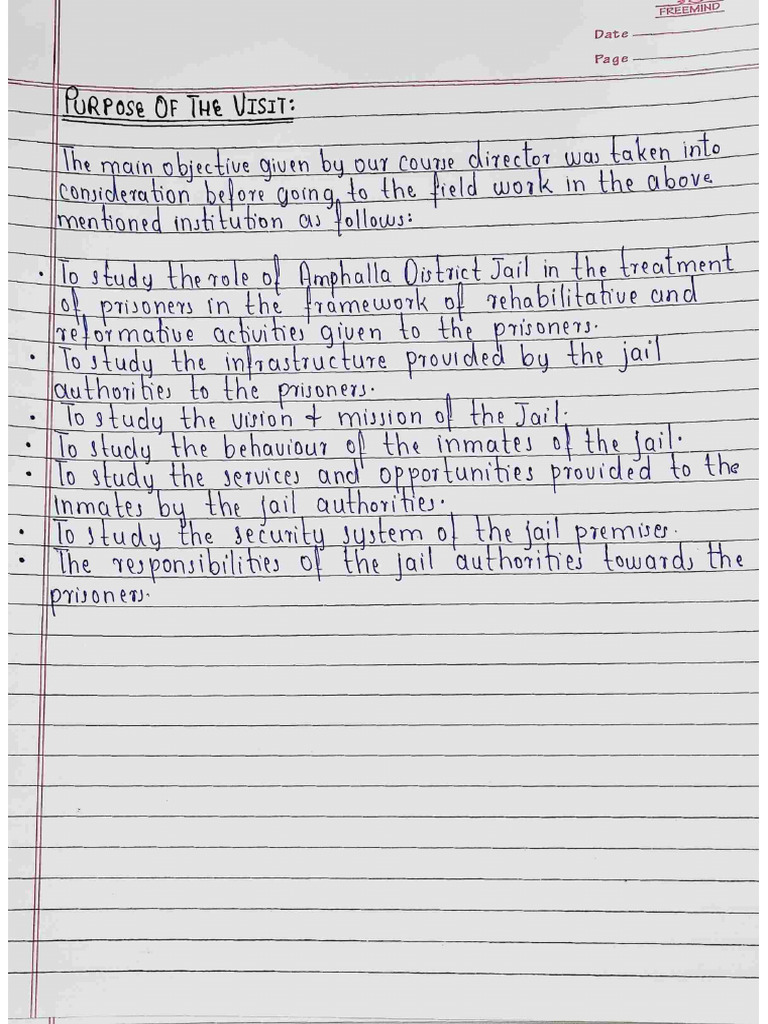 FREEMIND
Date
Page
PURPOSE OF THE VISIT:
The main objective given by our course director was taken into
consideration before going to the field work in the above
mentioned institution as follows:
• To study the role of Amphalla District Jail in the treatment
of prisoners in the framework of rehabilitative and
reformative activities given to the prisoners.
• To study the infrastructure provided by the jail
authorities to the prisoners.
• To study the vision & mission of the Jail.
• To study the behaviour of the inmates of the jail.
• To study the services and opportunities provided to the
inmates by the jail authorities.
• To study the security system of the jail premises.
• The responsibilities of the jail authorities towards the
prisoners.